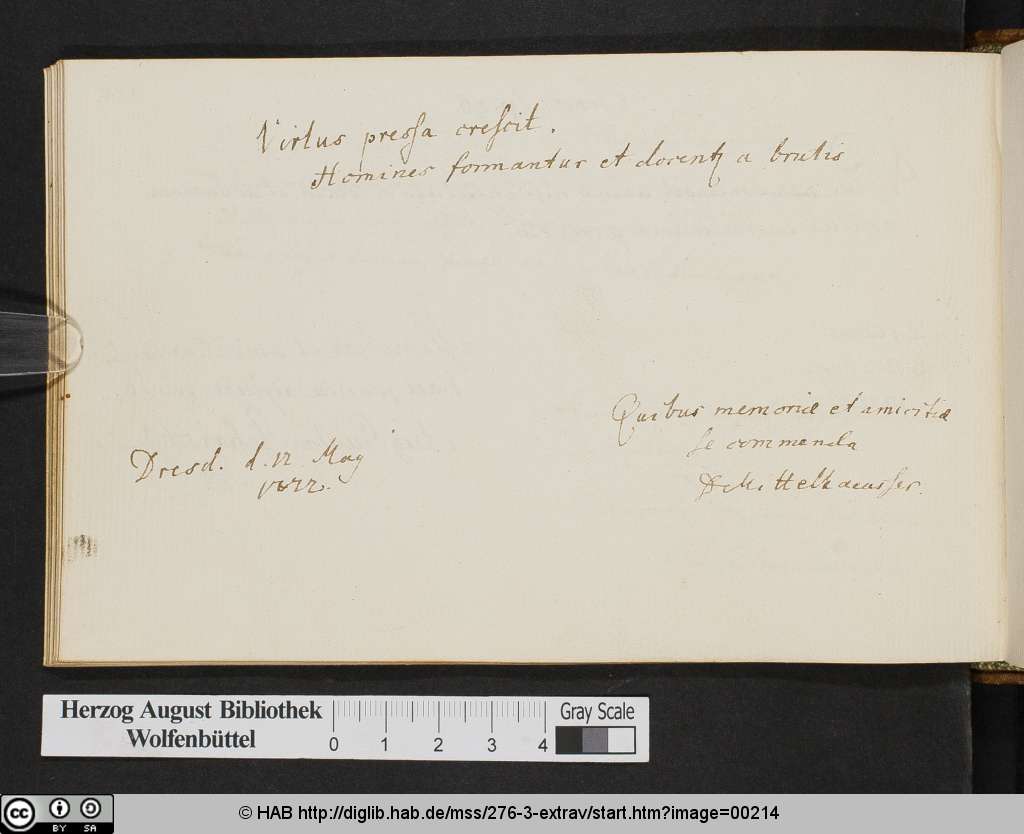 Virtus preſſa creſcit.
Homines formantur et docentꝫ a brutis
Quibus memoriæ et amicitiæ
ſe commenda
Mittelhaeuſſer.
Dresd. d. 12 May
Herzog August Bibliothek
Wolfenbüttel
0 1 2 3 4
Gray Scale
cc BY SA
© HAB http://diglib.hab.de/mss/276-3-extrav/start.htm?image=00214